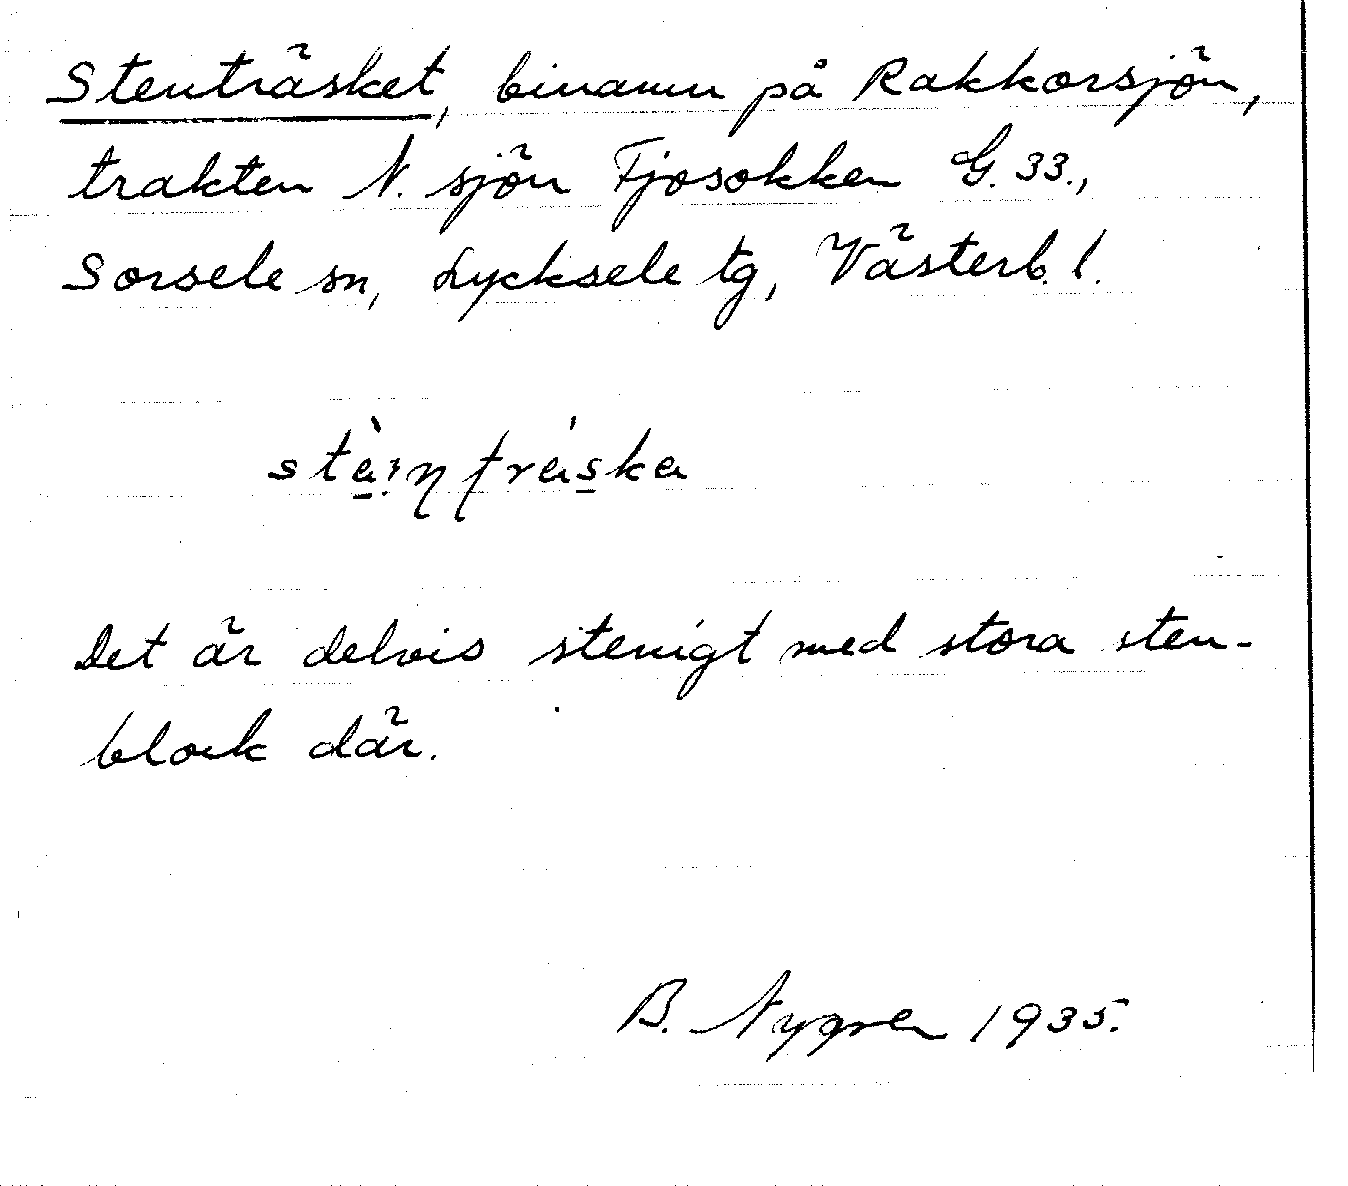 Stenträsket, binamn på Rakkorsjön,
trakten N. sjön Fjosokken G. 33.,
Sorsele sn, Lycksele tg, Västerb. l.
Det är delvis stenigt med stora sten-
block där.
B. Nygren 1935.